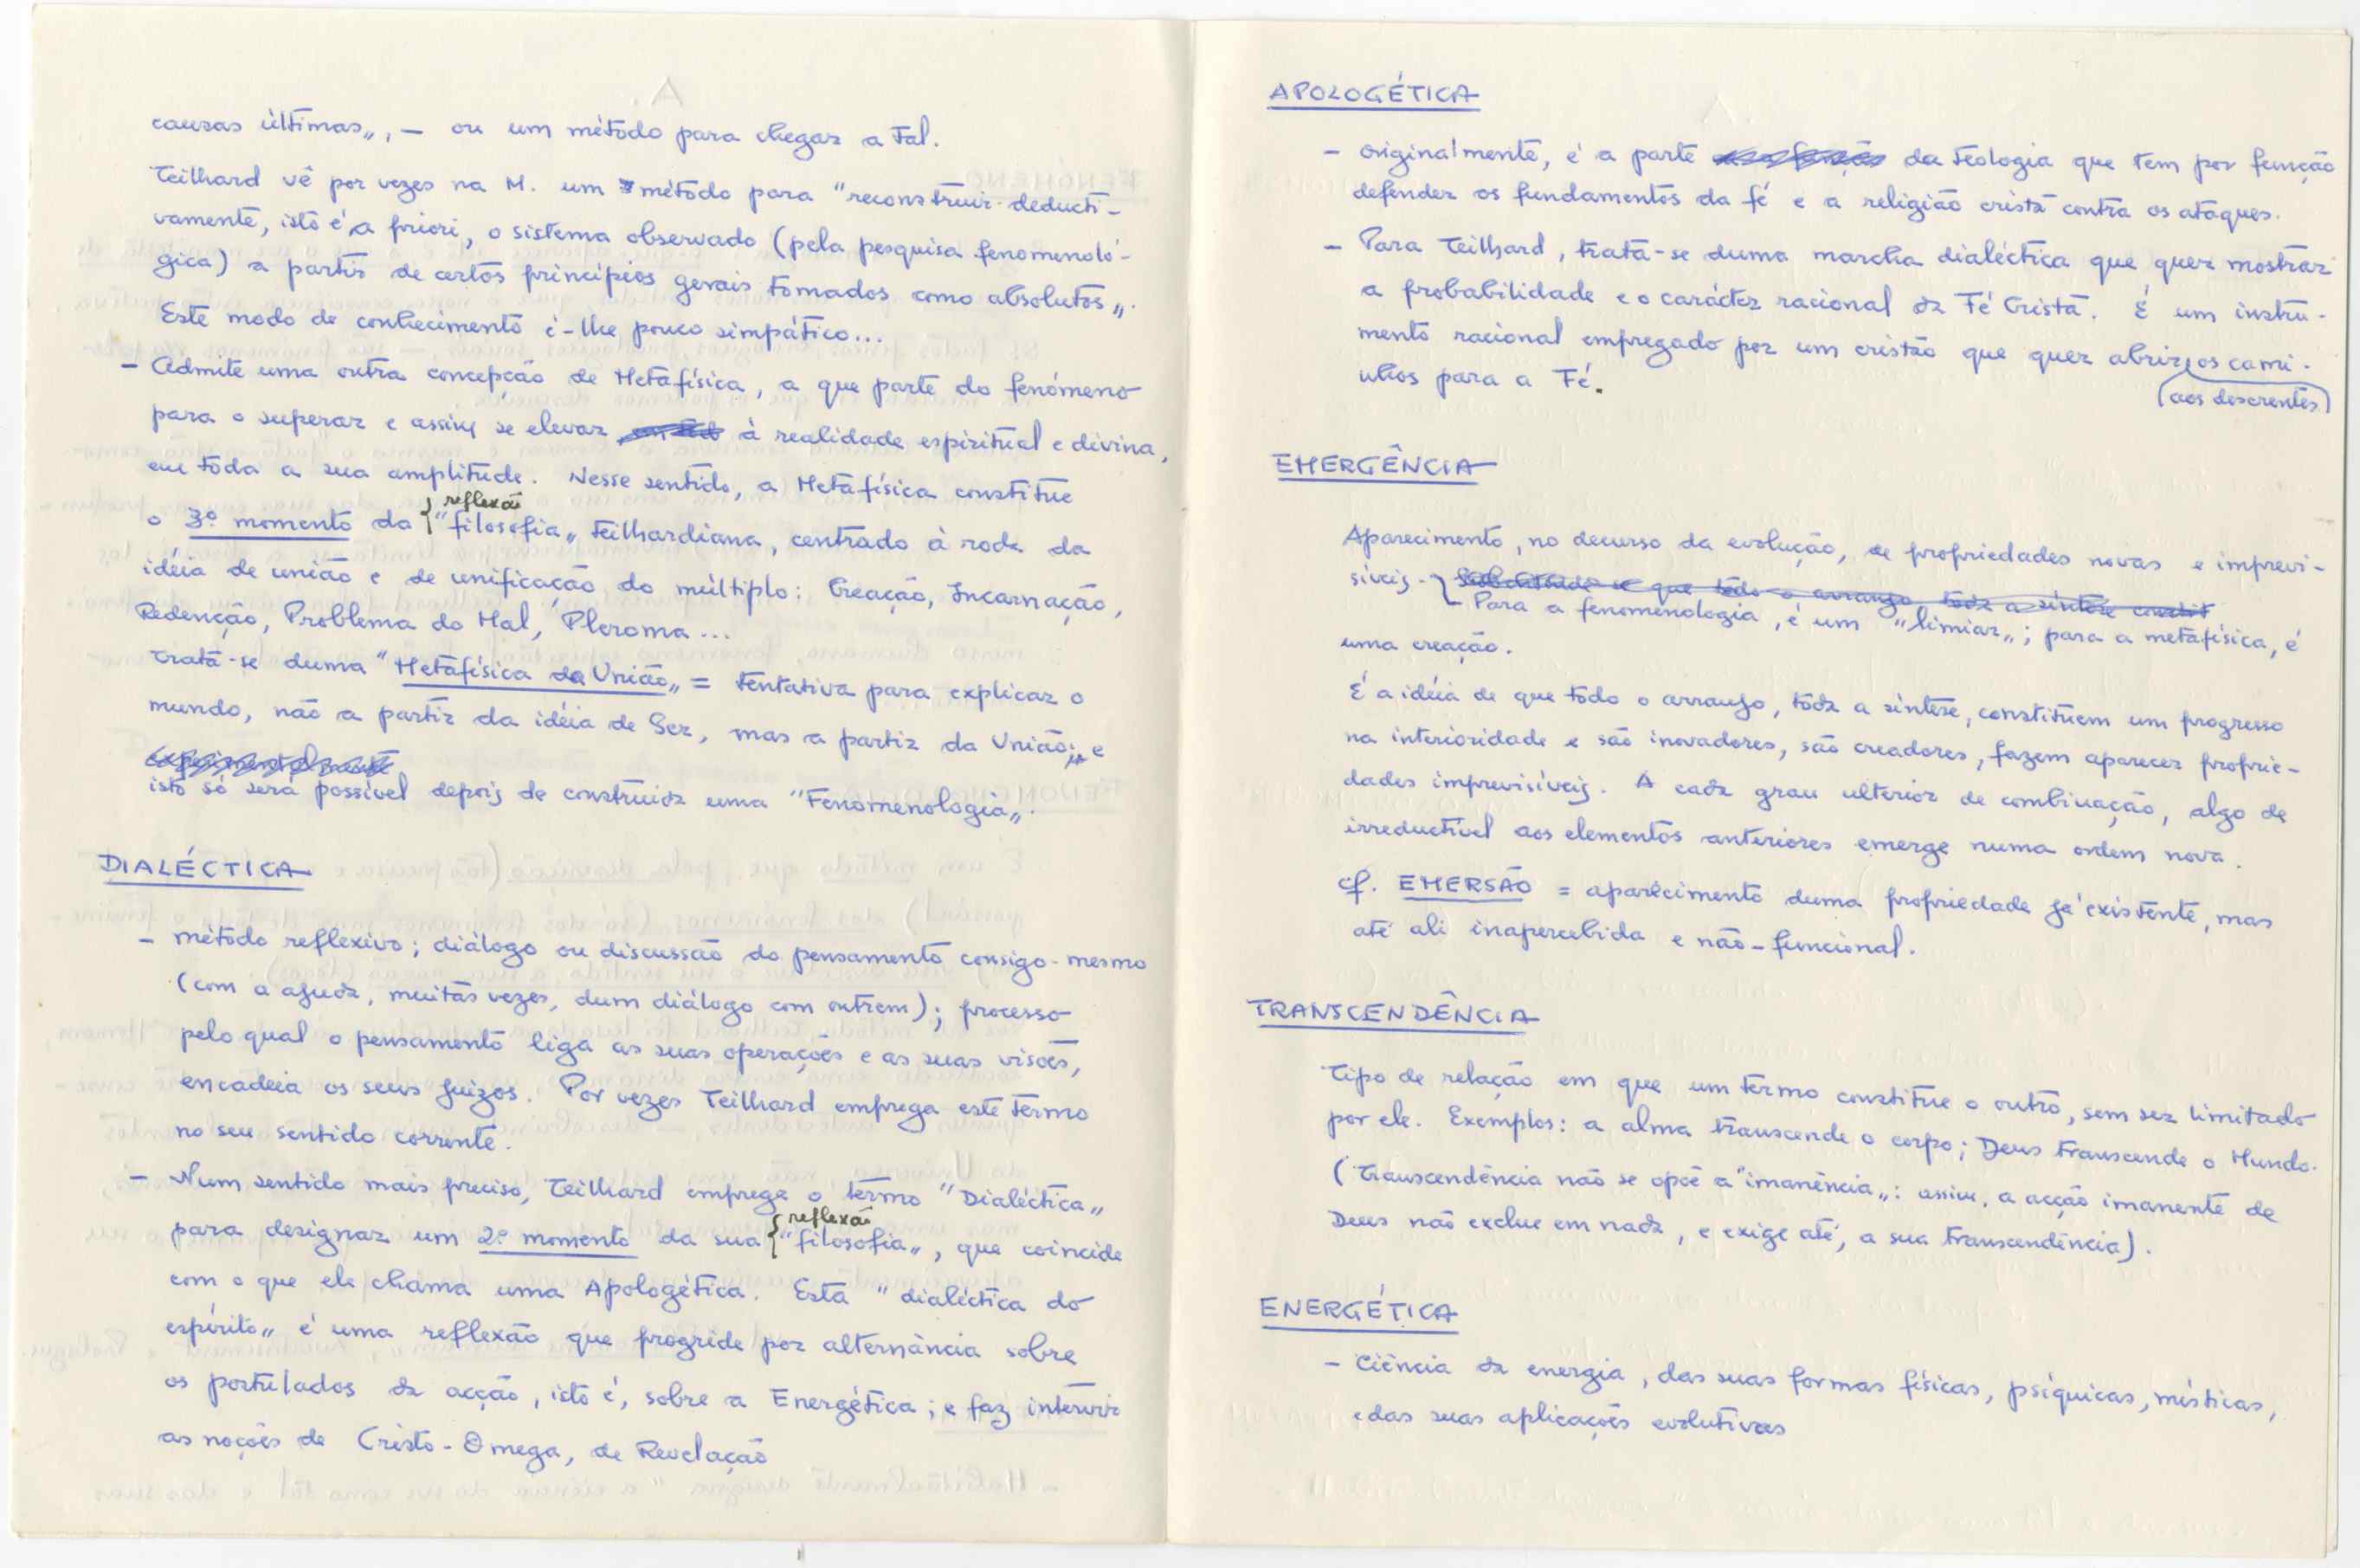 causas últimas„, — ou um método para chegar a tal.
Teilhard vê por vezes na M. um método para "reconstruir deducti-
vamente, isto é, a priori, o sistema observado (pela pesquisa fenomenoló-
gica) a partir de certos princípios gerais tomados como absolutos„.
Este modo de conhecimento é-lhe pouco simpático...
— Admite uma outra concepção de Metafísica, a que parte do fenómeno
para o superar e assim se elevar à realidade espiritual e divina,
em toda a sua amplitude. Nesse sentido, a Metafísica constitue
reflexão
o 3º momento da "filosofia„ teilhardiana, centrado à roda da
idéia de união e de unificação do múltiplo: Creação, Incarnação,
Redenção, Problema do Mal, Pleroma...
Trata-se duma "Metafísica da União„ = tentativa para explicar o
mundo, não a partir da idéia de Ser, mas a partir da União; e
experimentalmente
isto só será possível depois de construida uma "Fenomenologia„.
DIALÉCTICA
— método reflexivo; diálogo ou discussão do pensamento consigo-mesmo
(com a ajuda, muitas vezes, dum diálogo com outrem); processo
pelo qual o pensamento liga as suas operações e as suas visões,
encadeia os seus juizos. Por vezes Teilhard emprega este termo
no seu sentido corrente.
— Num sentido mais preciso, Teilhard emprega o termo "Dialéctica„
reflexão
para designar um 2º momento da sua "filosofia„, que coincide
com o que ele chama uma Apologética. Esta "dialéctica do
espírito„ é uma reflexão que progride por alternância sobre
os postulados da acção, isto é, sobre a Energética; e faz intervir
as noções de Cristo-Omega, de Revelação
APOLOGÉTICA
— Originalmente, é a parte da teologia que tem por função
defender os fundamentos da fé e a religião cristã contra os ataques.
— Para Teilhard, trata-se duma marcha dialéctica que quer mostrar
a probabilidade e o carácter racional da Fé Cristã. É um instru-
mento racional empregado por um cristão que quer abrir os cami-
nhos para a Fé.
(aos descrentes)
EMERGÊNCIA
Aparecimento, no decurso da evolução, de propriedades novas e imprevi-
síveis. Subentende-se que todo o arranjo toda a síntese constit
Para a fenomenologia, é um "limiar„; para a metafísica, é
uma creação.
É a idéia de que todo o arranjo, toda a síntese, constituem um progresso
na interioridade e são inovadores, são creadores, fazem aparecer proprie-
dades imprevisíveis. A cada grau ulterior de combinação, algo de
irreductível aos elementos anteriores emerge numa ordem nova.
cf. EMERSÃO = aparecimento duma propriedade já existente, mas
até ali inapercebida e não-funcional.
TRANSCENDÊNCIA
Tipo de relação em que um termo constitue o outro, sem ser limitado
por ele. Exemplos: a alma transcende o corpo; Deus transcende o Mundo.
(Transcendência não se opõe a "imanência„: assim, a acção imanente de
Deus não exclue em nada, e exige até, a sua transcendência).
ENERGÉTICA
— Ciência da energia, das suas formas físicas, psíquicas, místicas,
e das suas aplicações evolutivas